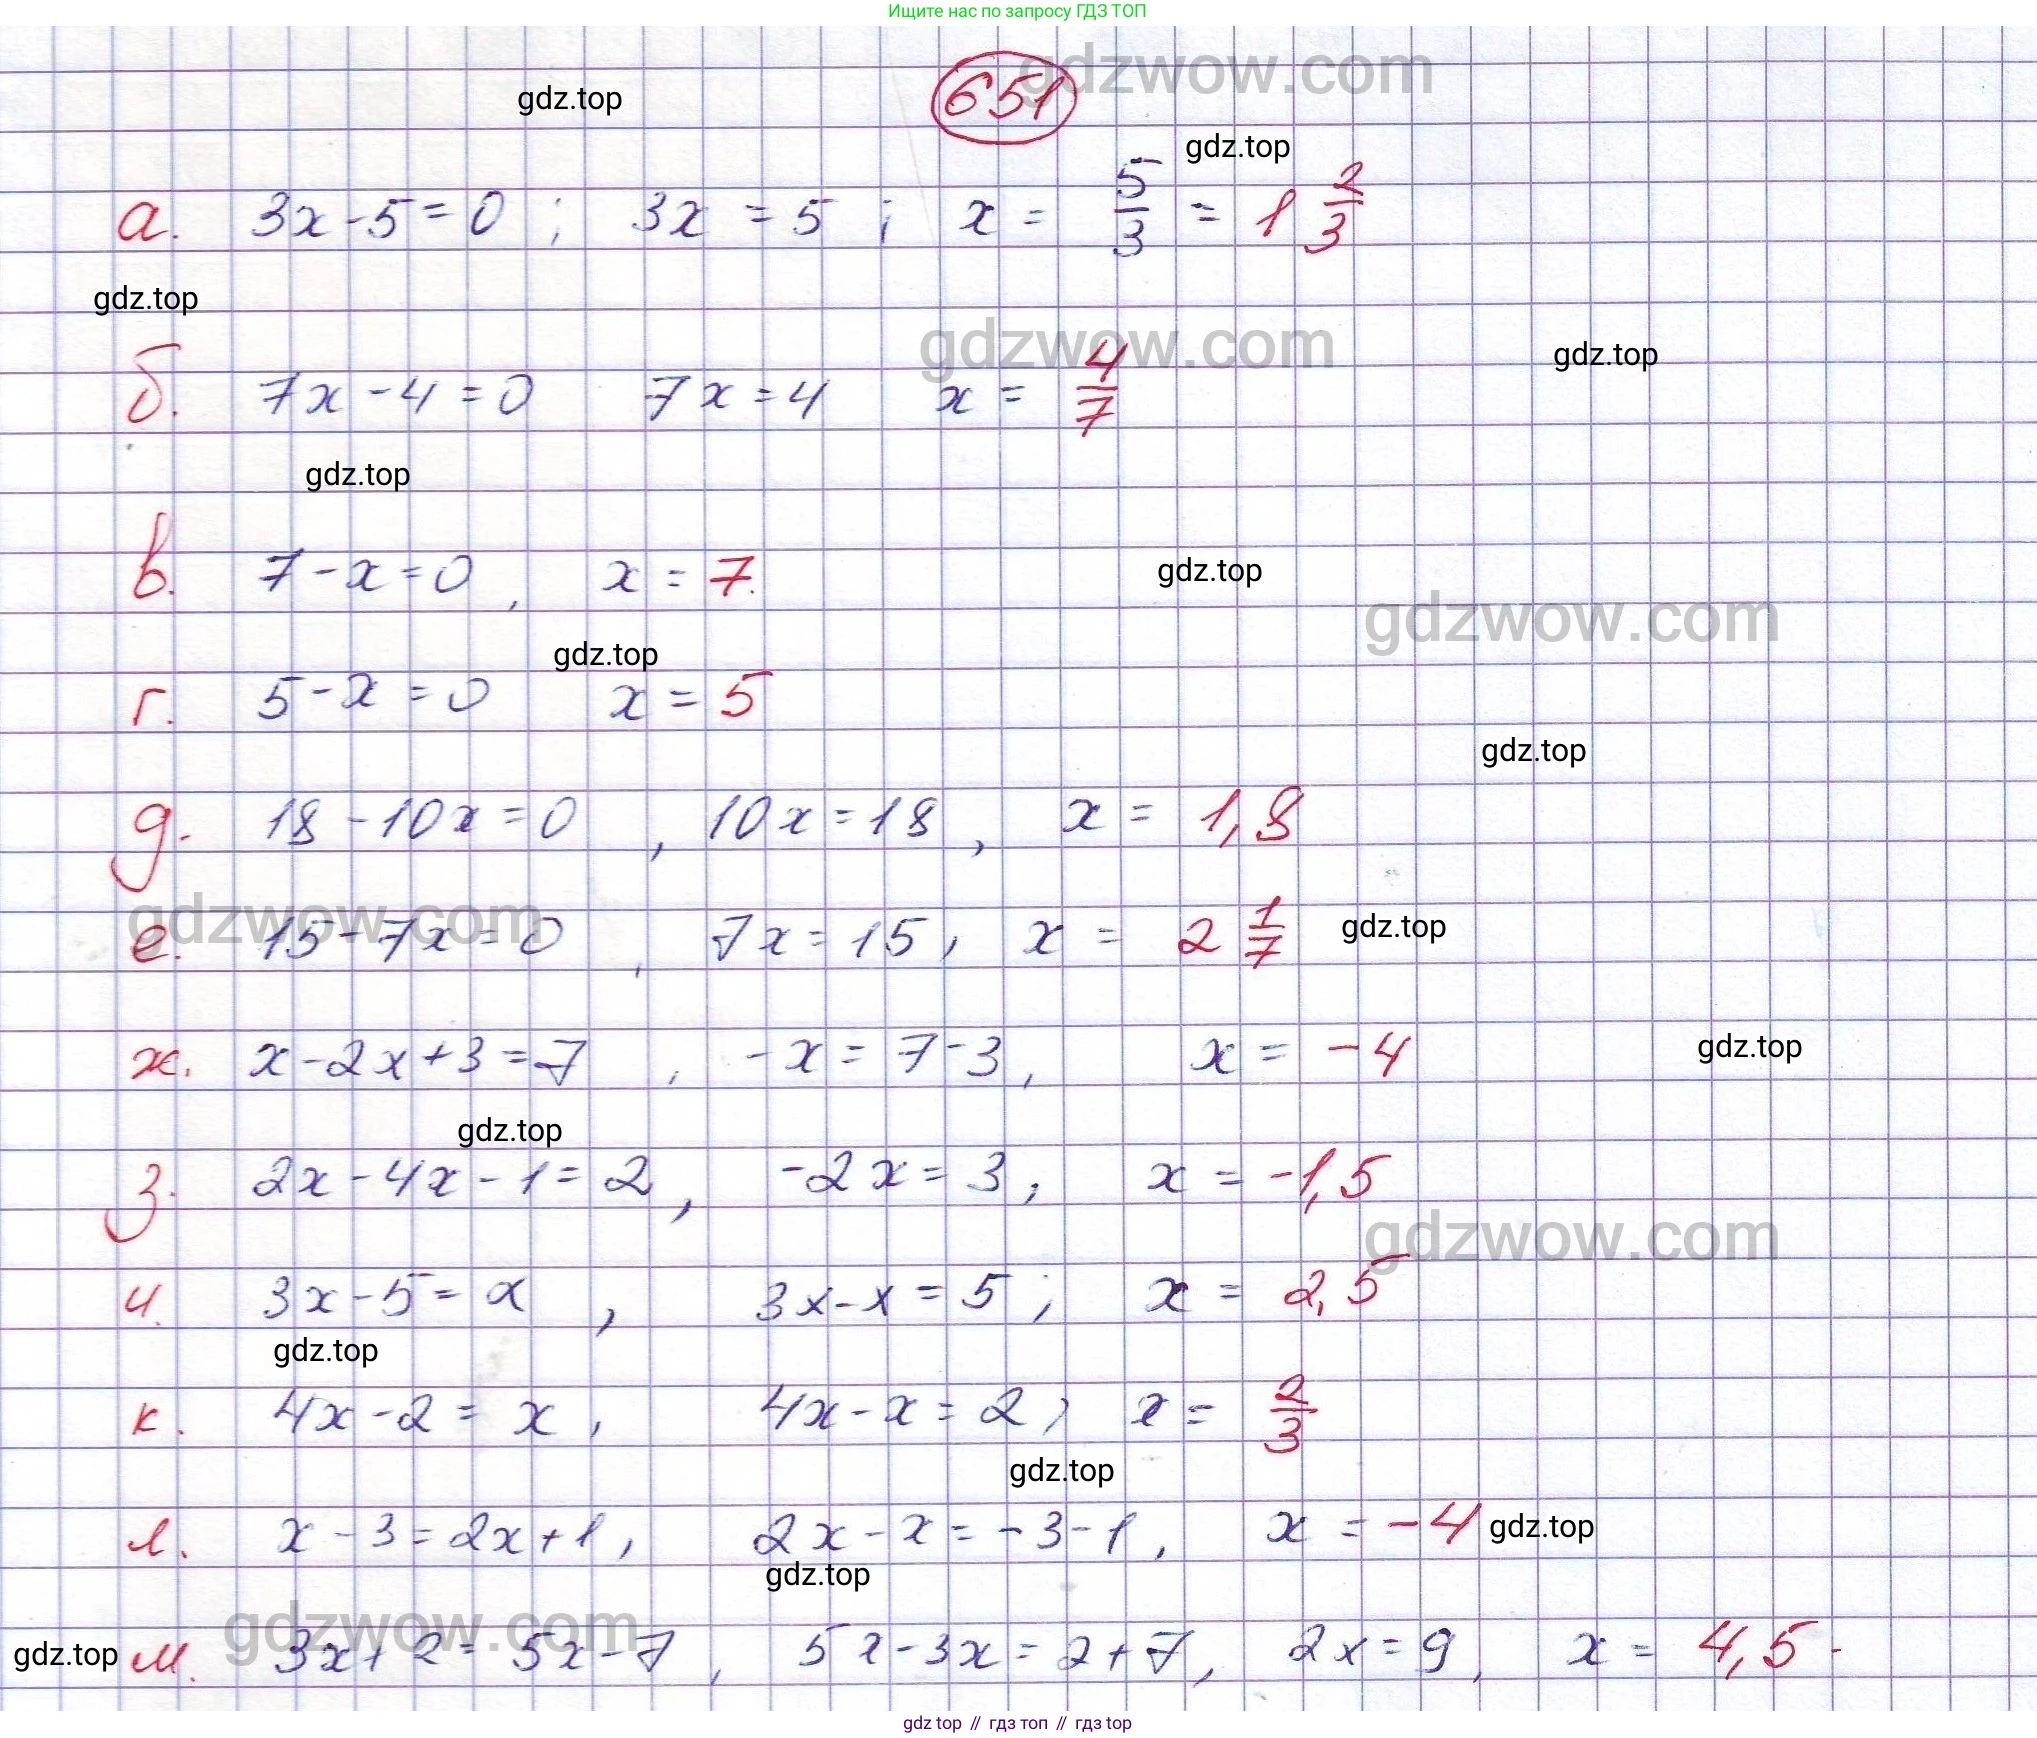 Ищите нас по запросу ГДЗ ТОП
gdzwow.com
651
gdz.top
gdz.top
а. 3x - 5 = 0 ; 3x = 5 ; x = 5/3 = 1 2/3
gdz.top
gdzwow.com
gdz.top
б. 7x - 4 = 0 7x = 4 x = 4/7
gdz.top
в. 7 - x = 0 , x = 7.
gdz.top
gdzwow.com
gdz.top
г. 5 - x = 0 x = 5
gdz.top
д. 18 - 10x = 0 , 10x = 18 , x = 1,8
gdzwow.com
е. 15 - 7x = 0 , 7x = 15 , x = 2 1/7
gdz.top
ж. x - 2x + 3 = 7 , -x = 7 - 3 , x = -4
gdz.top
gdz.top
з. 2x - 4x - 1 = 2 , -2x = 3 ; x = -1,5
gdzwow.com
и. 3x - 5 = x , 3x - x = 5 ; x = 2,5
gdz.top
к. 4x - 2 = x , 4x - x = 2 ; x = 2/3
gdz.top
л. x - 3 = 2x + 1 , 2x - x = -3 - 1 , x = -4
gdz.top
gdz.top
gdzwow.com
gdz.top
м. 3x + 2 = 5x - 7 , 5x - 3x = 2 + 7 , 2x = 9 , x = 4,5 .
gdz top // гдз топ // гдз top